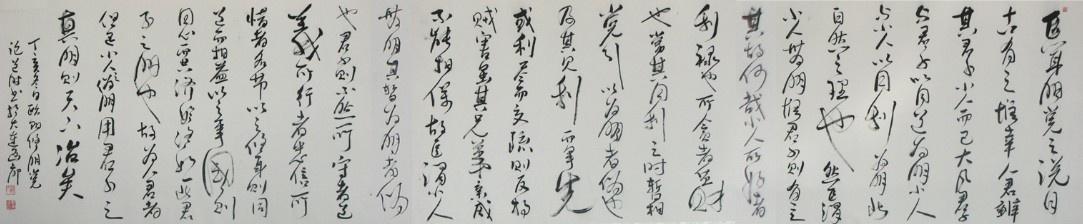 臣聞朋党之說自
古有之惟幸人君辨
其君子小人而已大凡君子
與君子以同道為朋小人
與小人以同利為朋此
自然之理也然臣謂
小人無朋惟君子則有之
其故何哉小人所好者
利祿也所貪者貨財
也當其同利之時暫相
党引以為朋者偽也
及其見利而爭先
或利盡而交疏則反相
賊害雖其兄弟親戚
不能相保故臣謂小人
無朋其暫為朋者偽
也君子則不然所守者道
義所行者忠信所
惜者名節以之修身則同
道而相益以之事國則
同心而共濟始終如一此君
子之朋也故為人君者
但退小人偽朋用君子之
真朋則天下治矣
丁亥冬日歐陽修朋党
論書於大連